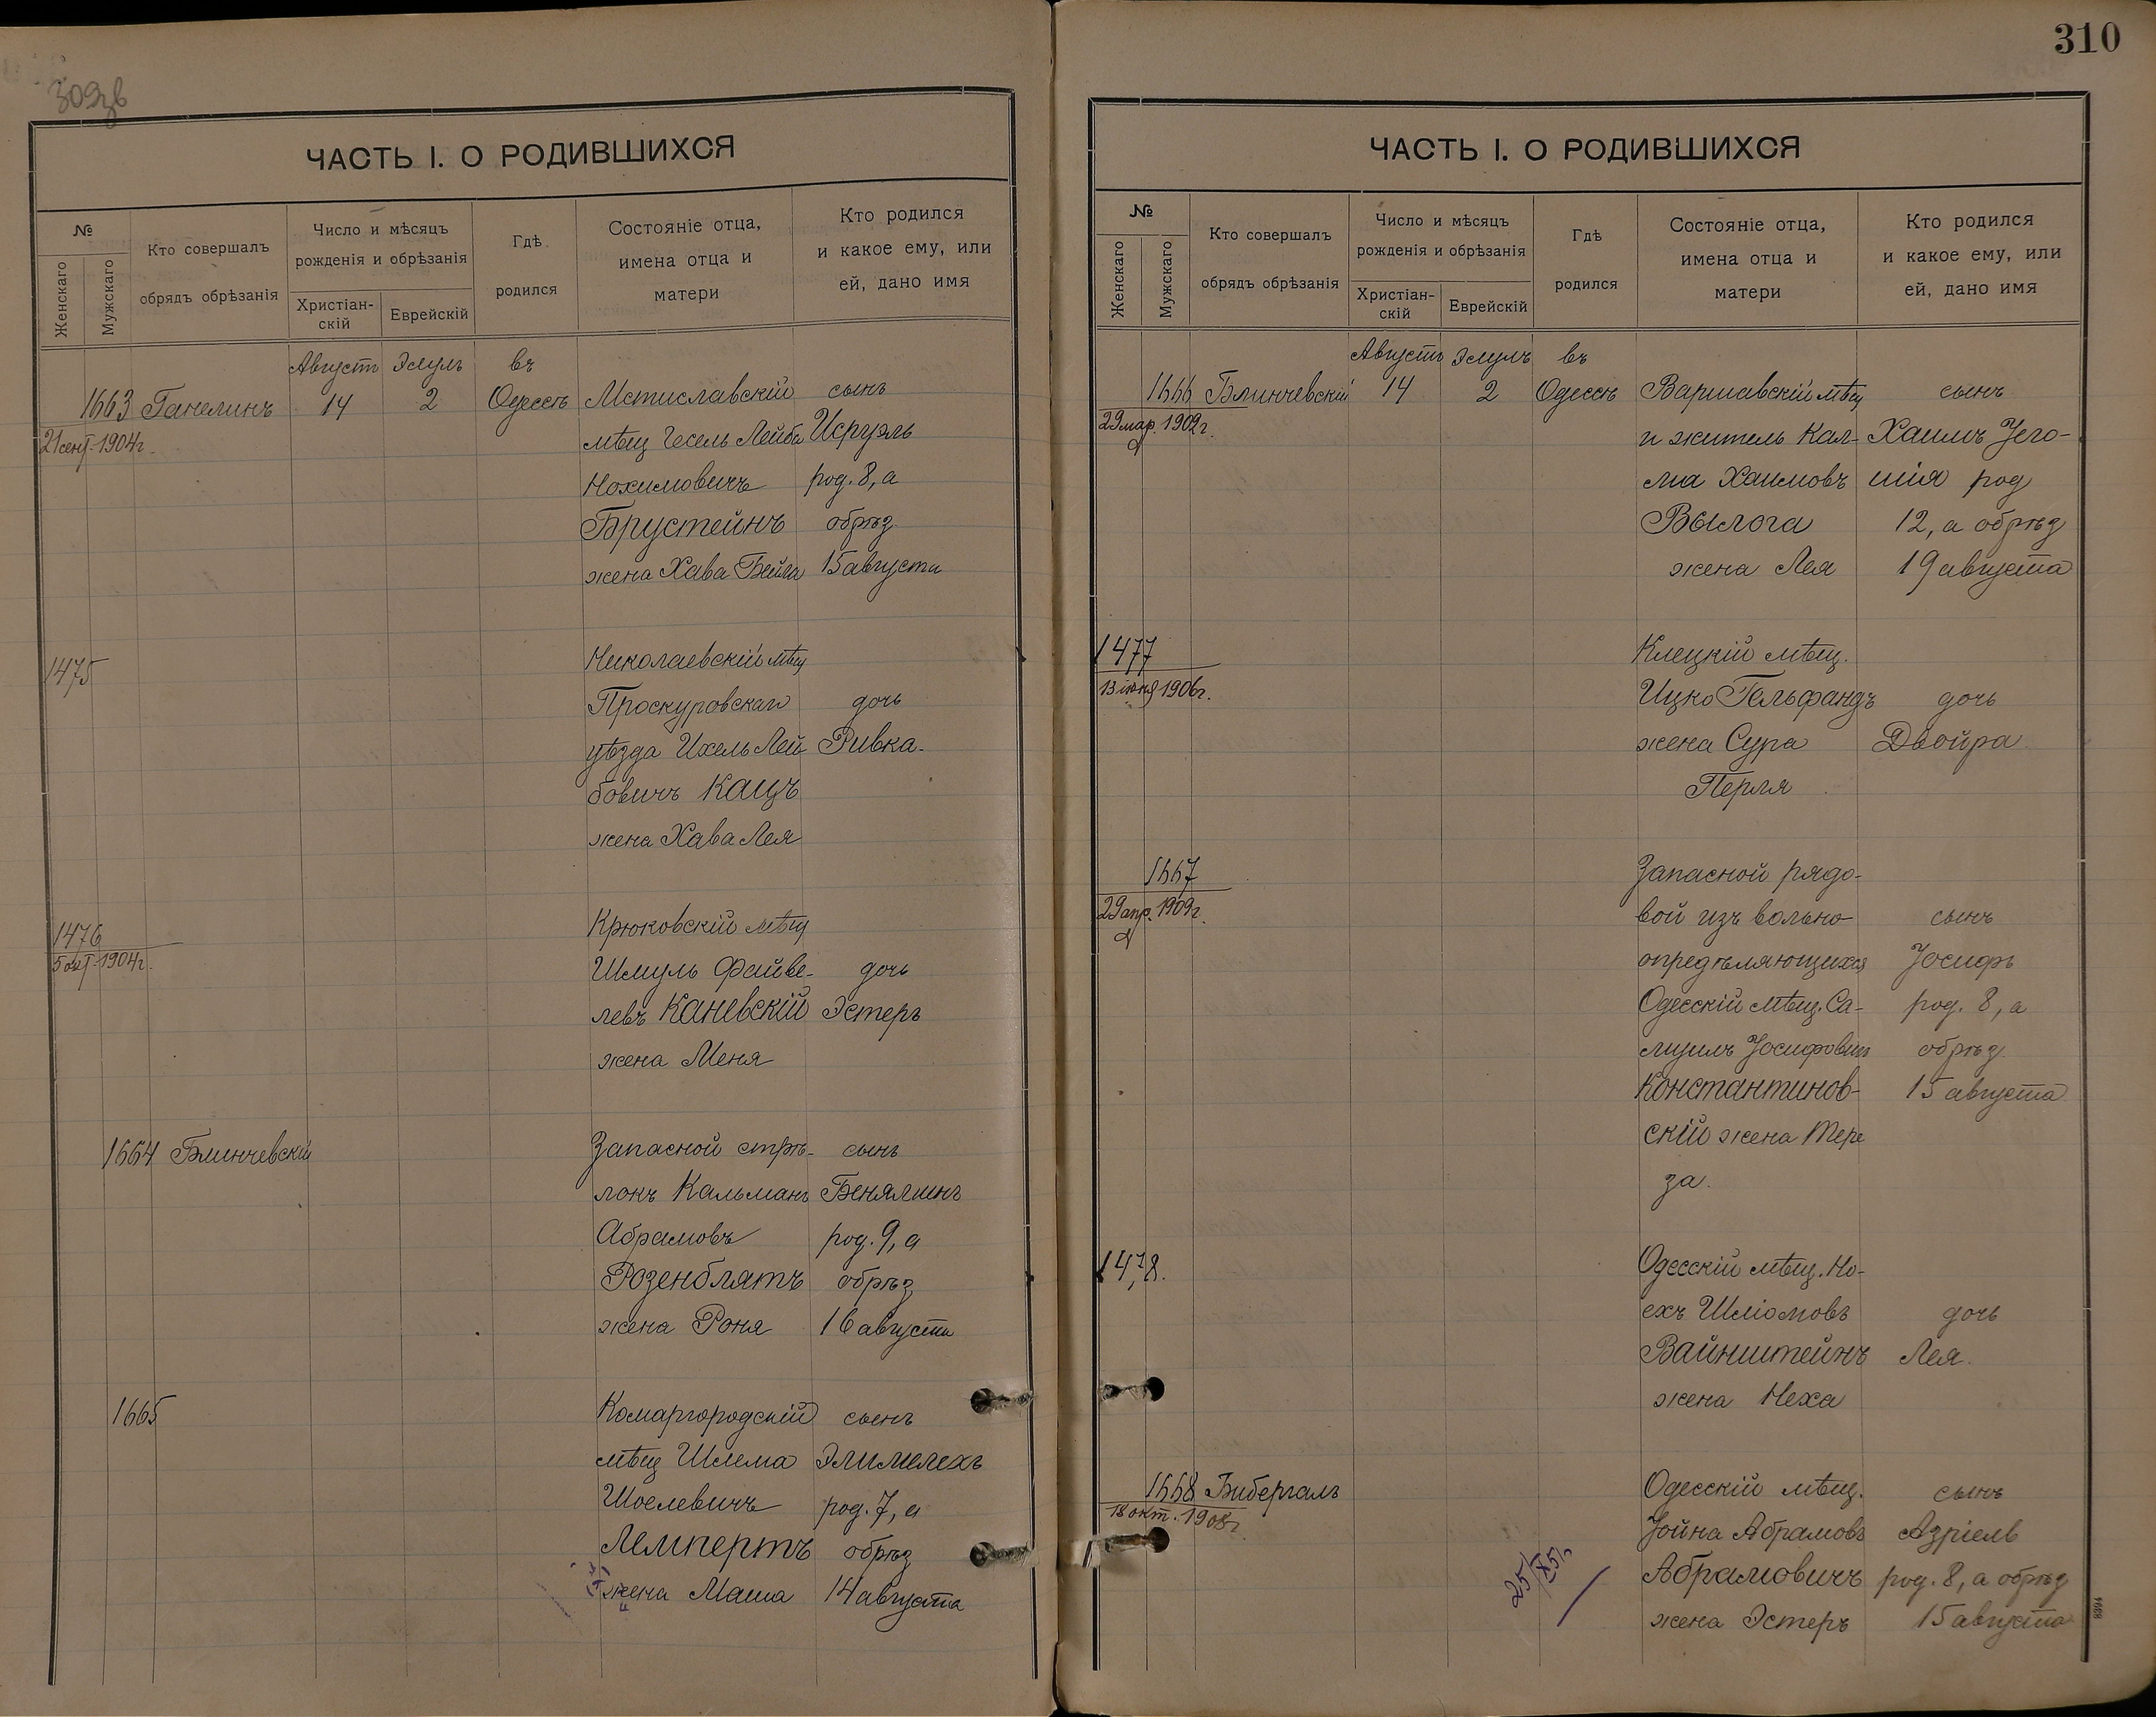 309зв
ЧАСТЬ I. О РОДИВШИХСЯ
№
Женскаго
Мужскаго
Кто совершалъ
обрядъ обрѣзанія
Число и мѣсяцъ
рожденія и обрѣзанія
Христіан-
скій
Еврейскій
Гдѣ
родился
Состояніе отца,
имена отца и
матери
Кто родился
и какое ему, или
ей, дано имя
Августъ Элулъ въ
1663 Ганелинъ 14 2 Одессѣ Мстиславскій сынъ
21 сент. 1904г. мѣщ Лейба Исруэль
Нохимовичъ род. 8, а
Брустейнъ обрѣз
жена Хава Бейла 15 августа
1475 Николаевскій мѣщ
Проскуровскаго дочь
уѣзда Ихель Лей Ривка.
бовичъ Кацъ
жена Хава Лея
1476 Крюковскій мѣщ
5 окт. 1904г.
Шмуль Файве- дочь
левъ Каневскій Эстеръ
жена Меня
1664 Блинчевскій Запасной стрѣ- сынъ
локъ Кальманъ Беняминъ
Абрамовъ род. 9, а
Розенблятъ обрѣз
жена Роня 16 августа
1665 Комаргородскій сынъ
мѣщ Шлема Элимелехъ
Шоелевичъ род. 7, а
Лемпертъ обрѣз
жена Маша 14 августа
310
ЧАСТЬ I. О РОДИВШИХСЯ
№
Женскаго
Мужскаго
Кто совершалъ
обрядъ обрѣзанія
Число и мѣсяцъ
рожденія и обрѣзанія
Христіан-
скій
Еврейскій
Гдѣ
родился
Состояніе отца,
имена отца и
матери
Кто родился
и какое ему, или
ей, дано имя
Августъ Элулъ въ
1666 Блинчевскій 14 2 Одессѣ Варшавскій мѣщ сынъ
29 мар. 1909г.
и житель Кал- Хаимъ Іего-
ма Хаимовъ шія род
Вылога 12, а обрѣз
жена Лея 19 августа
1477 Клецкій мѣщ.
13 іюня 1906г. Ицко Гельфандъ дочь
жена Сура Двойра
Перля
1667 Запасной рядо-
29 апр. 1909г. вой изъ вольно сынъ
опредѣляющихся Іосифъ
Одесскій мѣщ. Са- род. 8, а
муилъ Іосифовичъ обрѣз.
Константинов- 15 августа
скій жена Тере
за.
1478. Одесскій мѣщ. Но-
ехъ Шліомовъ дочь
Вайнштейнъ Лея.
жена Неха
1668 Бибергалъ Одесскій мѣщ. сынъ
18 окт. 1908г.
Іойна Абрамовъ Азріель
Абрамовичъ род. 8, а обрѣз
жена Эстеръ 15 августа